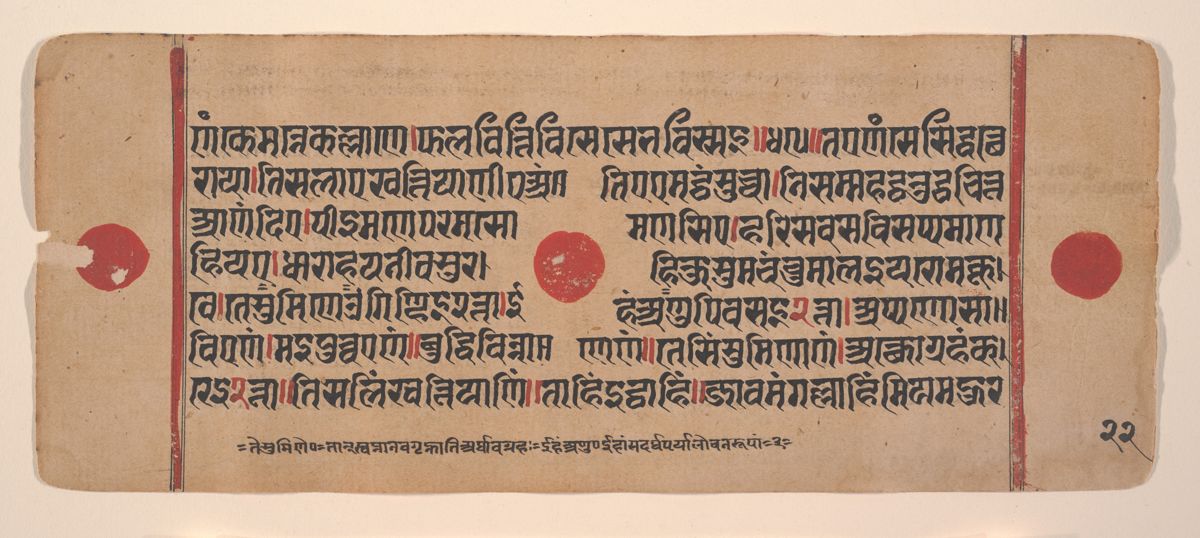 णंकेमन्नेकल्लाणे।फलवित्तिविसेसेभविस्सइ॥५०॥तएणंसेसिद्धत्थे
राया।तिसलाएखत्तियाणीएअं तिएएमट्ठंसुच्चा।निसम्महट्ठतुट्ठचित्ते
आणंदिए।पीइमणेपरमसो मणसिए।हरिसवसविसप्पमाण
हियए।धाराहयनीवसुर। हिकुसुमचंचुमालइयरोमकू।
वे।तेसुमिणेओगिण्हइ२त्ता।ई हंअणुपविसइ२त्ता।अप्पणोसा॥
विएणं।मइपुव्वएणं॥बुद्धिविन्ना णेणं॥तेसिंसुमिणाणं।अत्थोग्गहंक।
रेइ२त्ता॥तिसलिंखत्तियाणिं॥ताहिंइट्ठाहिं॥जावमंगल्लाहिंमियमहुर
=तेसुमिणेए=तान्स्वप्नानवगृह्णातिअर्थावग्रहः=ईहंअणुप०ईहांसदर्थपर्यालोचनरूपां=२=
२२